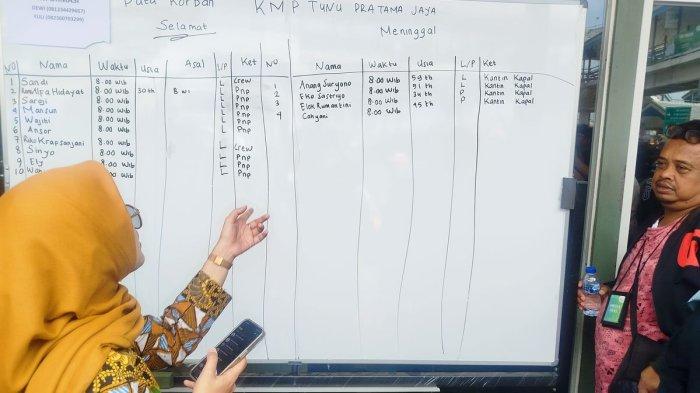 DEWI (081234429667)
YULI (082360703299)
Data Korban KMP TUNU PRATAMA JAYA
Selamat
Meninggal
NO Nama Waktu Usia Asal L/P Ket
1 Sandi 8.00 Wib L Crew
2 Hidayat 8.00 Wib 30 th Bwi L Pnp
3 Saroji 8.00 Wib L Pnp
4 Mansun 8.00 Wib L Pnp
5 Wajihi 8.00 Wib L Pnp
6 Ansor 8.00 Wib L Pnp
7 Riko Krapsanjani 8.00 Wib L
8 Sinyo 8.00 Wib L Crew
9 Ely 8.00 Wib L Pnp
10 8.00 Wib L Pnp
NO Nama Waktu Usia L/P Ket
1 Anang Suryono 8.00 Wib 59 th L Kantin Kapal
2 Eko Sastriyo 8.00 Wib 51 th L Kantin Kapal
3 Elok Rumantini 8.00 Wib 34 th P Kantin Kapal
4 Cahyani 8.00 Wib 45 th P Kantin Kapal